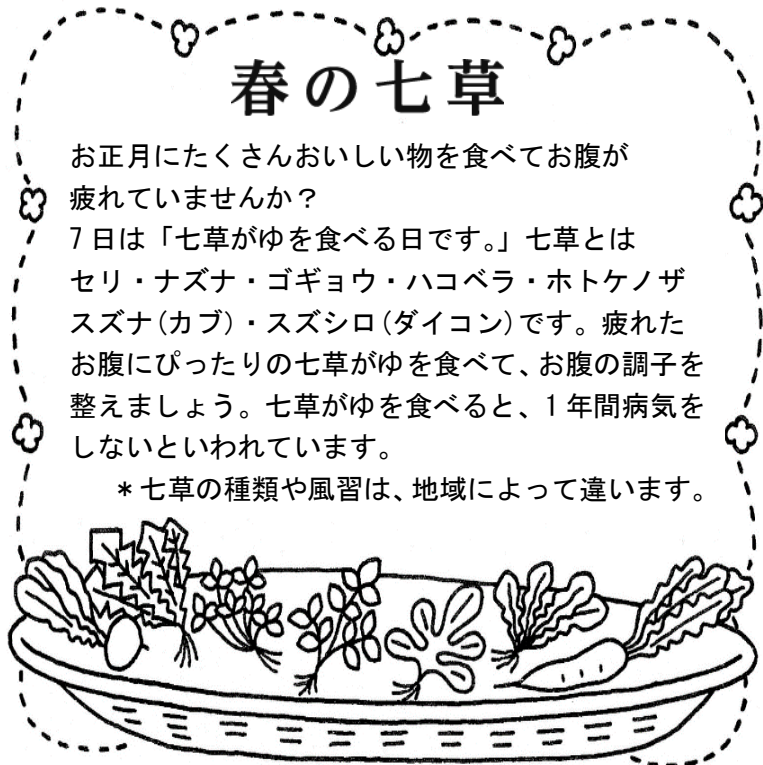 春の七草
お正月にたくさんおいしい物を食べてお腹が
疲れていませんか？
7日は「七草がゆを食べる日です。」七草とは
セリ・ナズナ・ゴギョウ・ハコベラ・ホトケノザ
スズナ(カブ)・スズシロ(ダイコン)です。疲れた
お腹にぴったりの七草がゆを食べて、お腹の調子を
整えましょう。七草がゆを食べると、1年間病気を
しないといわれています。
＊七草の種類や風習は、地域によって違います。